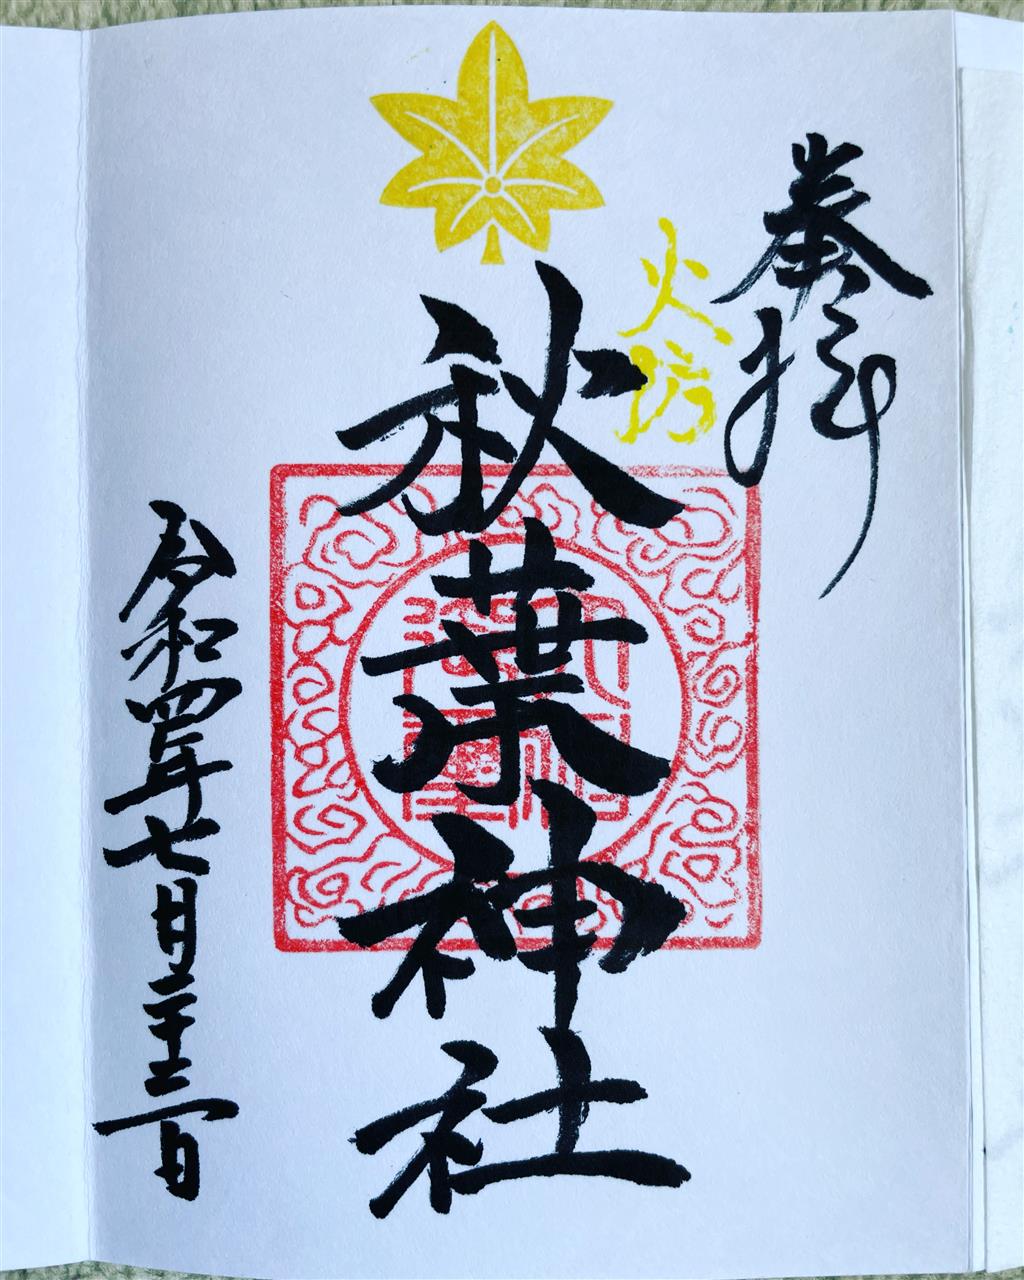 奉拝
火防
秋葉神社
令和四年七月二十三日